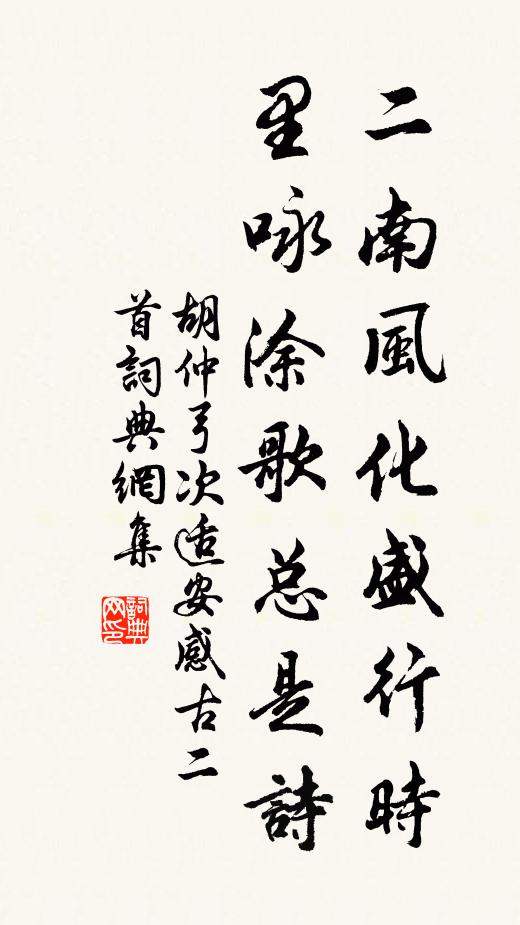 二南風化盛行時
里咏涂歌总是詩
胡仲弓次适安感古二
首詞典網集
詞典网印